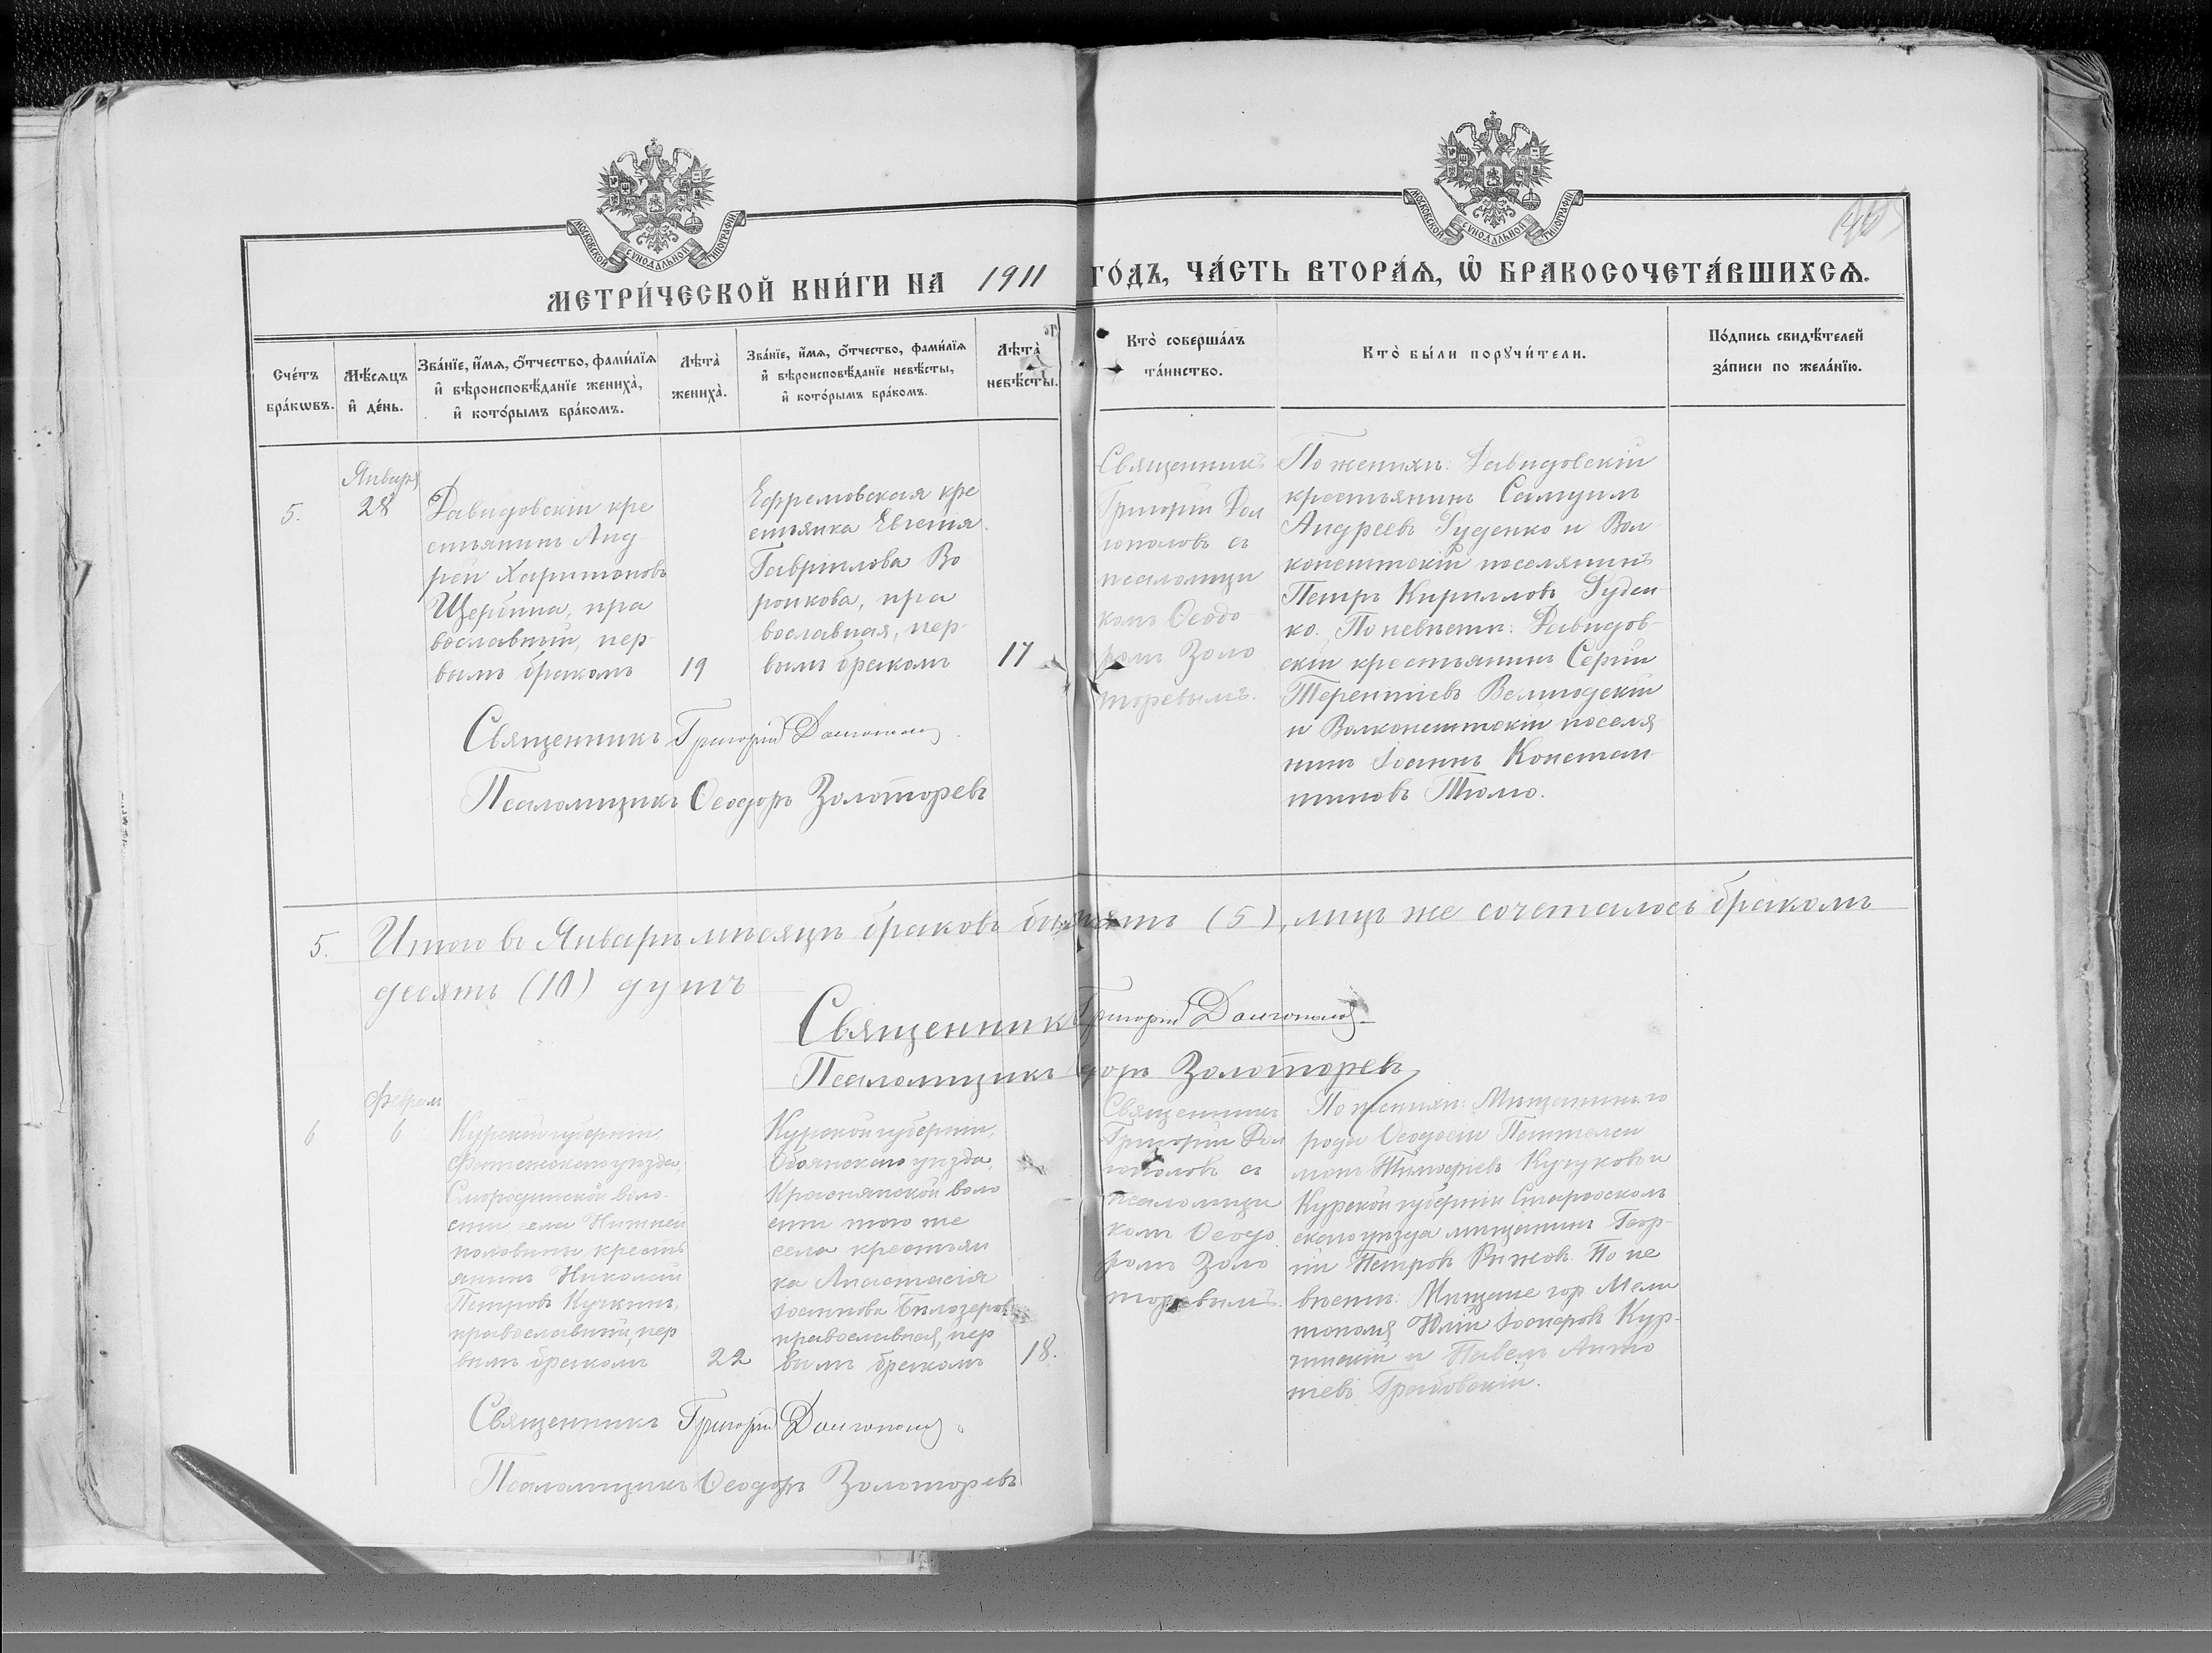 МОСКОВСКОЙ СѴНОДАЛЬНОЙ ТИПОГРАФІИ
МОСКОВСКОЙ СѴНОДАЛЬНОЙ ТИПОГРАФІИ
МЕТРИ́ЧЕСКОЙ КНИ́ГИ НА 1911 ГО́ДЪ, ЧА́СТЬ ВТОРА́Ѧ, Ѽ БРАКОСОЧЕТА́ВШИХСѦ.
Сче́тъ
бра́кѡвъ.
Мѣ́сяцъ
и҆ де́нь.
Зва́нїе, и҆́мѧ, ѻ҆́тчество, фами́лїѧ
и҆ вѣроисповѣ́данїе жениха̀,
и҆ кото́рымъ бра́комъ.
Лѣта̀
жениха̀.
Зва́нїе, и҆́мѧ, ѻ҆́тчество, фами́лїѧ
и҆ вѣроисповѣ́данїе невѣ́сты,
и҆ кото́рымъ бра́комъ.
Лѣта̀
невѣ́сты.
Кто̀ соверша́лъ
та́инство.
Кто̀ бы́ли порꙋчи́тели.
По́дпись свидѣ́телей
за́писи по жела́нїю.
5.
Января
28
Давидовскій кре
стьянинъ Анд
рей Харитоновъ
Щербина, пра
вославный, пер-
вымъ бракомъ
19
Ефремовская кре
стьянка Евгенія
Гавріилова Во
ронкова, пра
вославная, пер-
вымъ бракомъ
17
Священникъ
Григорій Дол
гополовъ съ
псаломщи
комъ Ѳеодо
ромъ Золо
торевымъ.
По женихѣ: Давидовскій
крестьянинъ Самуилъ
Андреевъ Руденко и Вол
конештскій поселянинъ
Петръ Кирилловъ Руден
ко. По невѣстѣ: Давидов-
скій крестьянинъ Сергій
Терентіевъ
и Волконештскій поселя
нинъ Іоаннъ Констан
тиновъ
Священникъ Григорій Долгополовъ
Псаломщикъ Ѳеодоръ Золоторевъ
5. Итого въ Январѣ мѣсяцѣ браковъ было пять (5), лицъ же сочеталось бракомъ
десять (10) душъ
Священникъ Григорій Долгополовъ
Псаломщикъ Ѳеодоръ Золоторевъ
6
Февраля
6
Курской губерніи
Фатежскаго уѣзда,
Смородинской воло-
сти села Нижней
половины, кресть
янинъ Николай
Петровъ Кучкинъ,
православный, пер
вымъ бракомъ
22
Курской губерніи,
Обоянскаго уѣзда,
Краснянской воло
сти того же
села крестьян
ка Анастасія
Іоаннова Бѣлозерова
православная, пер
вымъ бракомъ
18.
Священникъ
Григорій Дол
гополовъ съ
псаломщи
комъ Ѳеодо
ромъ Золо
торевымъ.
По женихѣ: Мѣщанинъ го
рода Ѳеодосіи Пантелей
монъ Тимофеевъ Кучуковъ и
Курской губерніи Старооскол
скаго уѣзда мѣщанинъ Геор-
гій Петровъ Рыжовъ. По не
вѣстѣ: Мѣщане гор Мели
тополя Юлій Іосифовъ
и Павелъ Анто
ніевъ
Священникъ Григорій Долгополовъ
Псаломщикъ Ѳеодоръ Золоторевъ